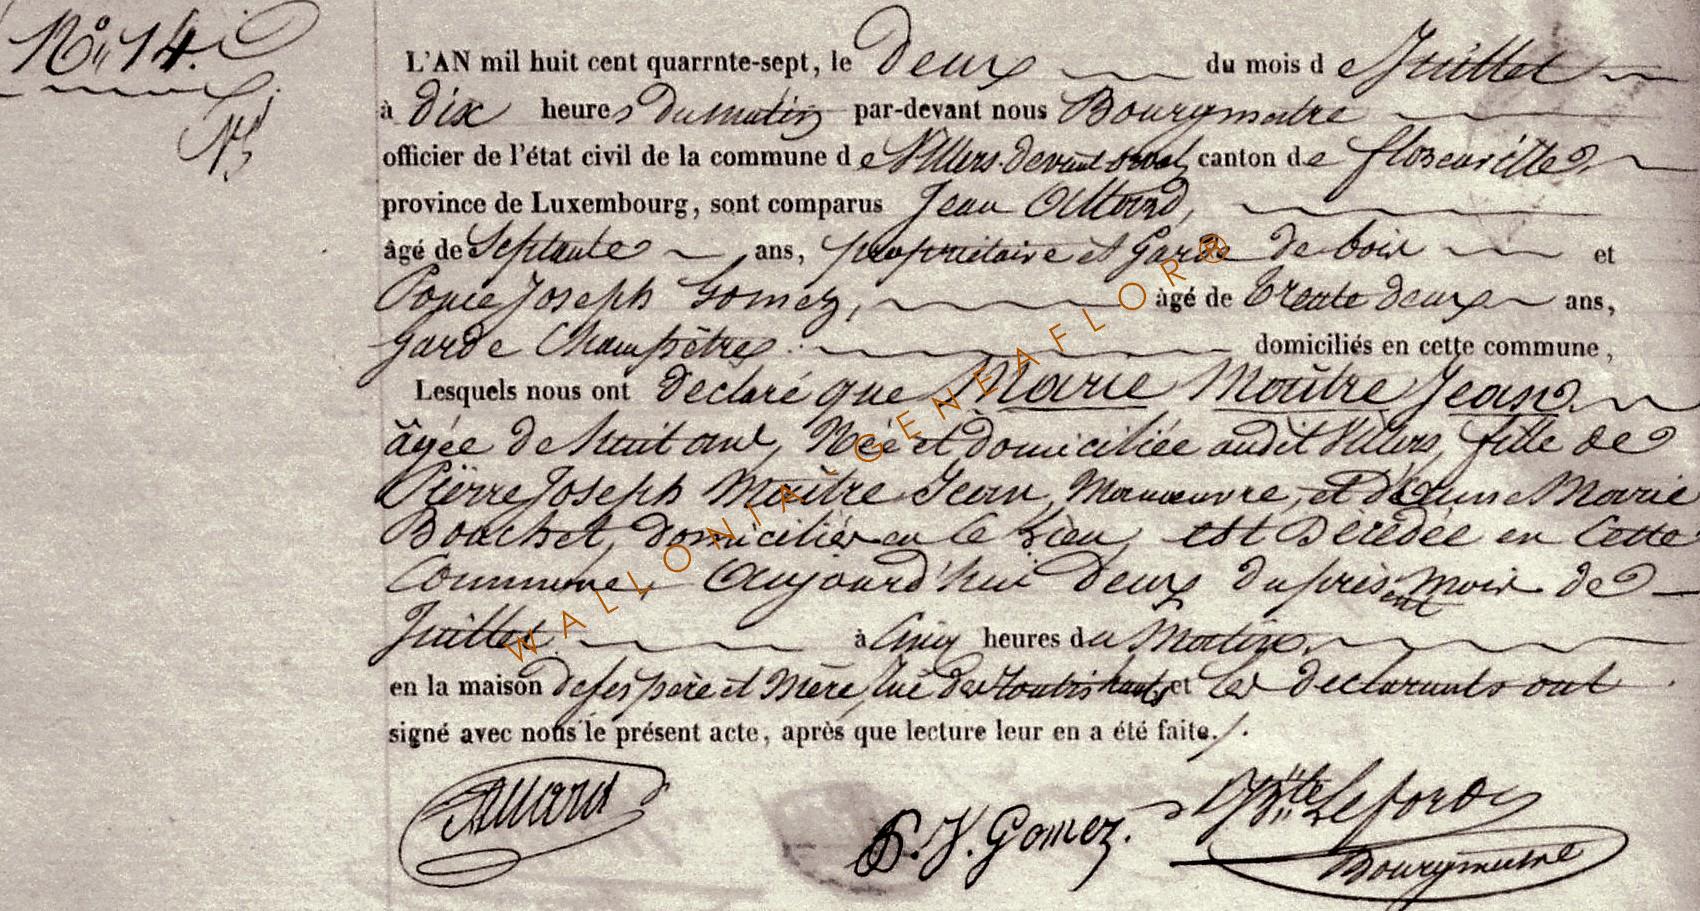 N° 14.
L'AN mil huit cent quarrnte-sept, le Deux du mois de Juillet
à dix heures du matin par-devant nous Bourgmatre
officier de l'état civil de la commune de Villers devant orval canton de florenville,
province de Luxembourg, sont comparus Jean Allard,
âgé de Septante ans, propriétaire et Garde de bois et
Ponce Joseph Gomez, âgé de trente deux ans,
Garde Champêtre domiciliés en cette commune,
Lesquels nous ont déclaré que Marie Maître Jean
âgée de huit ans, Née et domiciliée audit Villers, fille de
Pierre Joseph Maître Jean, Manœuvre, et de Marie
Bouchet, domiciliés en ce Lieu, est Décédée en Cette
Commune, Aujourd'hui Deux du présent Mois de
Juillet à Cinq heures du Matin,
en la maison de ses père et Mère, et les déclarants ont
signé avec nous le présent acte, après que lecture leur en a été faite./.
Allard
P. J. Gomez.
Bourgmestre
WALLONIA GENEAFLOR®